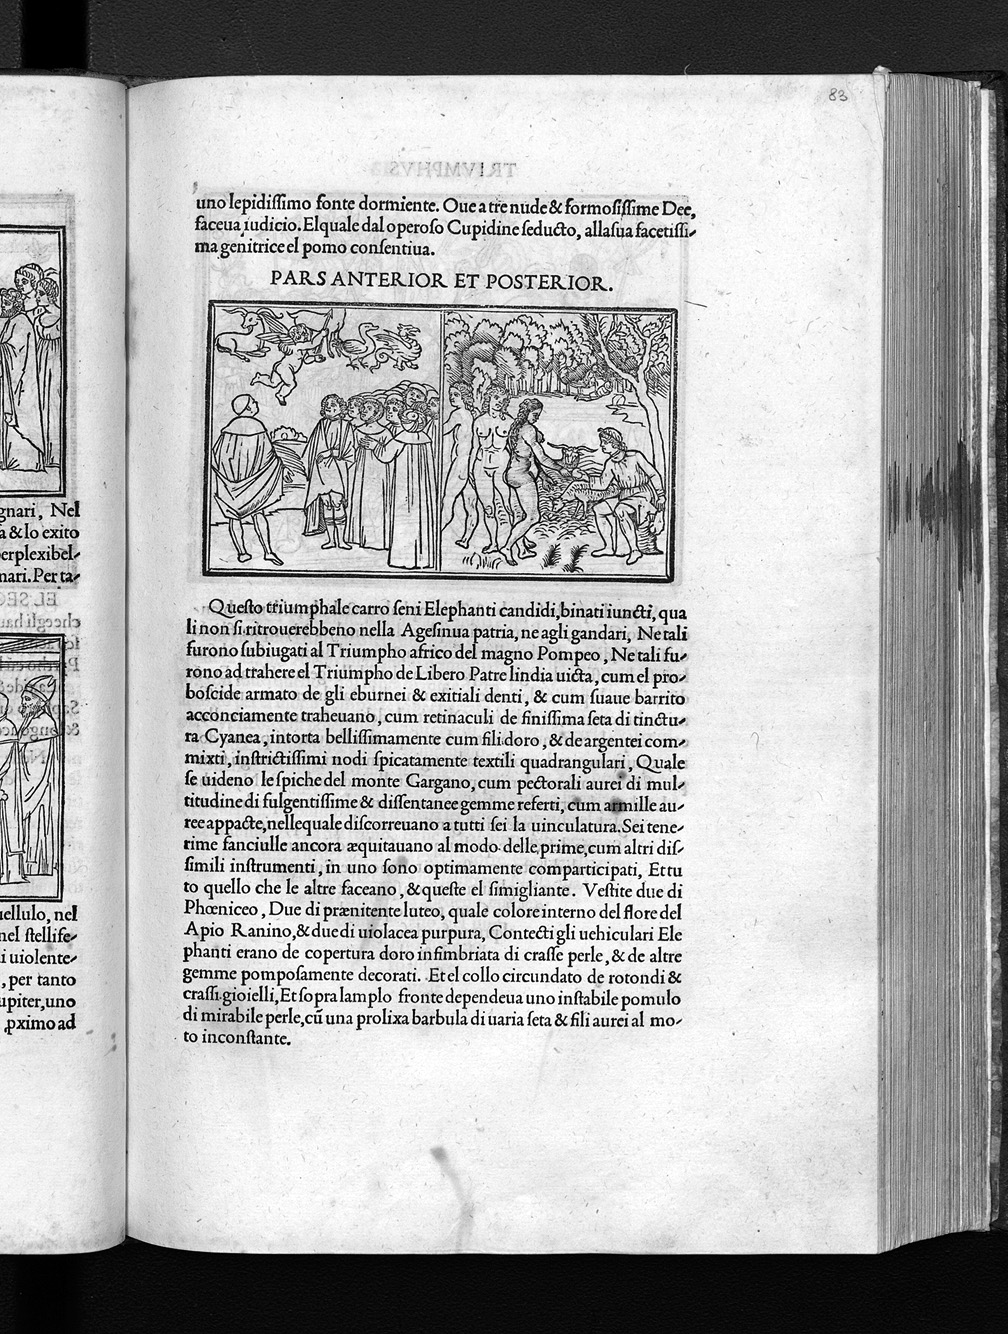 gnari, Nel
a & lo exito
erplexibel-
nari. Per ta-
uellulo, nel
nel stellife-
i uiolente-
, per tanto
upiter, uno
ꝓximo ad
83
uno lepidiſſimo fonte dormiente. Oue a tre nude & formoſiſſime Dee,
faceua iudicio. Elquale dal operoſo Cupidine ſeducto, alla ſua facetiſſi-
ma genitrice el pomo conſentiua.
PARS ANTERIOR ET POSTERIOR.
Queſto triumphale carro ſeni Elephanti candidi, binati iuncti, qua
li non ſi ritrouerebbeno nella Ageſinua patria, ne agli gandari, Ne tali
furono ſubiugati al Triumpho africo del magno Pompeo, Ne tali fu-
rono ad trahere el Triumpho de Libero Patre lindia uicta, cum el pro-
boſcide armato de gli eburnei & exitiali denti, & cum ſuaue barrito
acconciamente traheuano, cum retinaculi de finiſſima ſeta di tinctu-
ra Cyanea, intorta belliſſimamente cum fili doro, & de argentei com-
mixti, inſtrictiſſimi nodi ſpicatamente textili quadrangulari, Quale
ſe uideno le ſpiche del monte Gargano, cum pectorali aurei di mul-
titudine di fulgentiſſime & diſſentanee gemme referti, cum armille au-
ree appacte, nellequale diſcorreuano a tutti ſei la uinculatura. Sei tene-
rime fanciulle ancora æquitauano al modo delle prime, cum altri diſ-
ſimili inſtrumenti, in uno ſono optimamente comparticipati, Et tu
to quello che le altre faceano, & queſte el ſimigliante. Veſtite due di
Phœniceo, Due di prænitente luteo, quale colore interno del flore del
Apio Ranino, & due di uiolacea purpura, Contecti gli uehiculari Ele
phanti erano de copertura doro infimbriata di craſſe perle, & de altre
gemme pompoſamente decorati. Et el collo circundato de rotondi &
craſſi gioielli, Et ſopra lamplo fronte dependeua uno inſtabile pomulo
di mirabile perle, cū una prolixa barbula di uaria ſeta & fili aurei al mo-
to inconſtante.